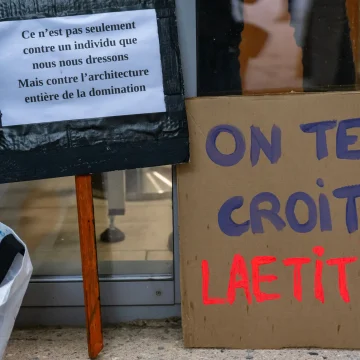 Ce n'est pas seulement
contre un individu que
nous nous dressons
Mais contre l'architecture
entière de la domination
ON TE
CROIT
LAETIT